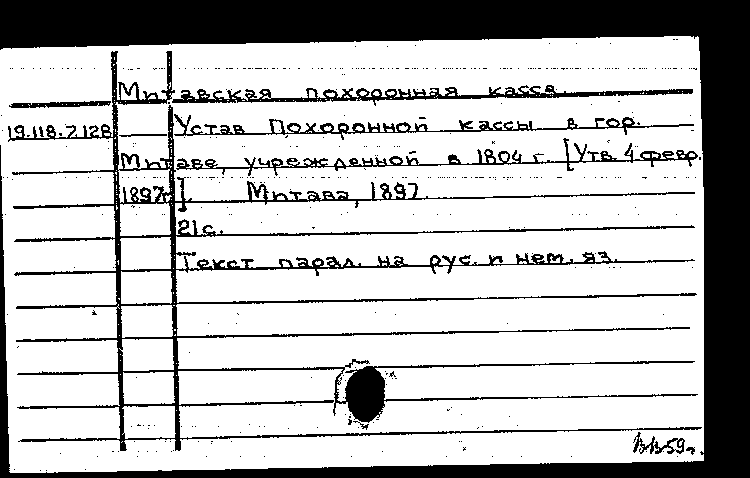 Митавская похоронная касса.
19.118.7.128 Устав Похоронной кассы в гор.
Митаве, учрежденной в 1804 г. [Утв. 4 февр.
1897г]. Митава, 1897.
21 с.
Текст парал. на рус. и нем. яз.